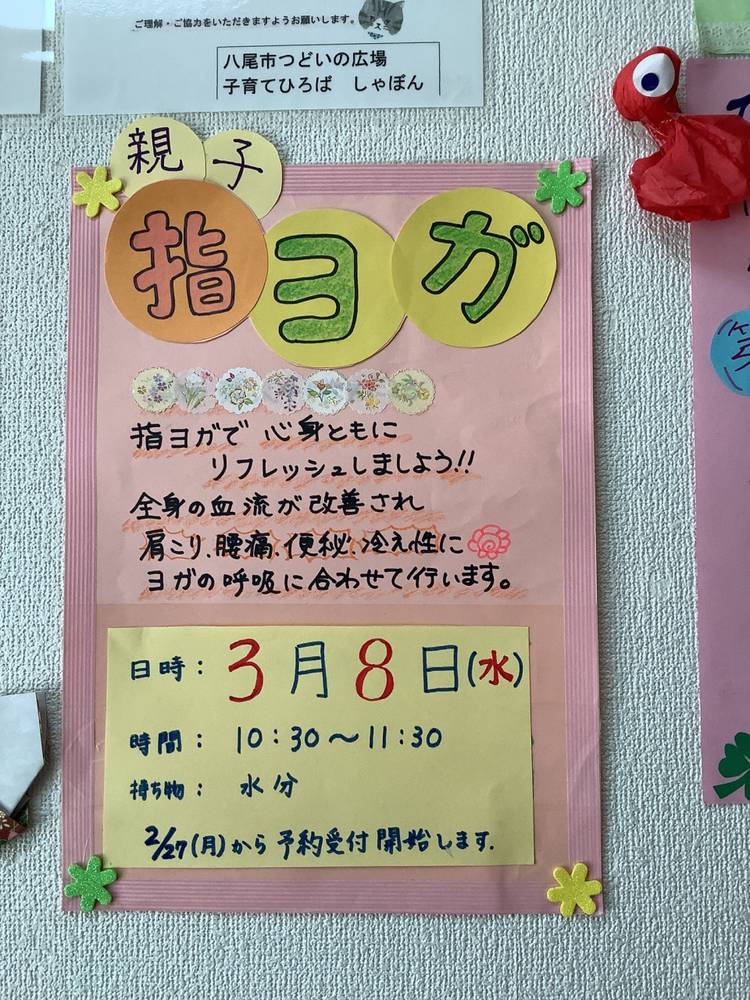 ご理解・ご協力をいただきますようお願いします。
八尾市つどいの広場
子育てひろば しゃぼん
親子
指ヨガ
指ヨガで 心身ともに
リフレッシュしましよう!!
全身の血流が改善され
肩こり、腰痛、便秘、冷え性に
ヨガの呼吸に合わせて行います。
日時: 3月8日(水)
時間: 10:30〜11:30
持ち物: 水分
2/27(月)から予約受付開始します.